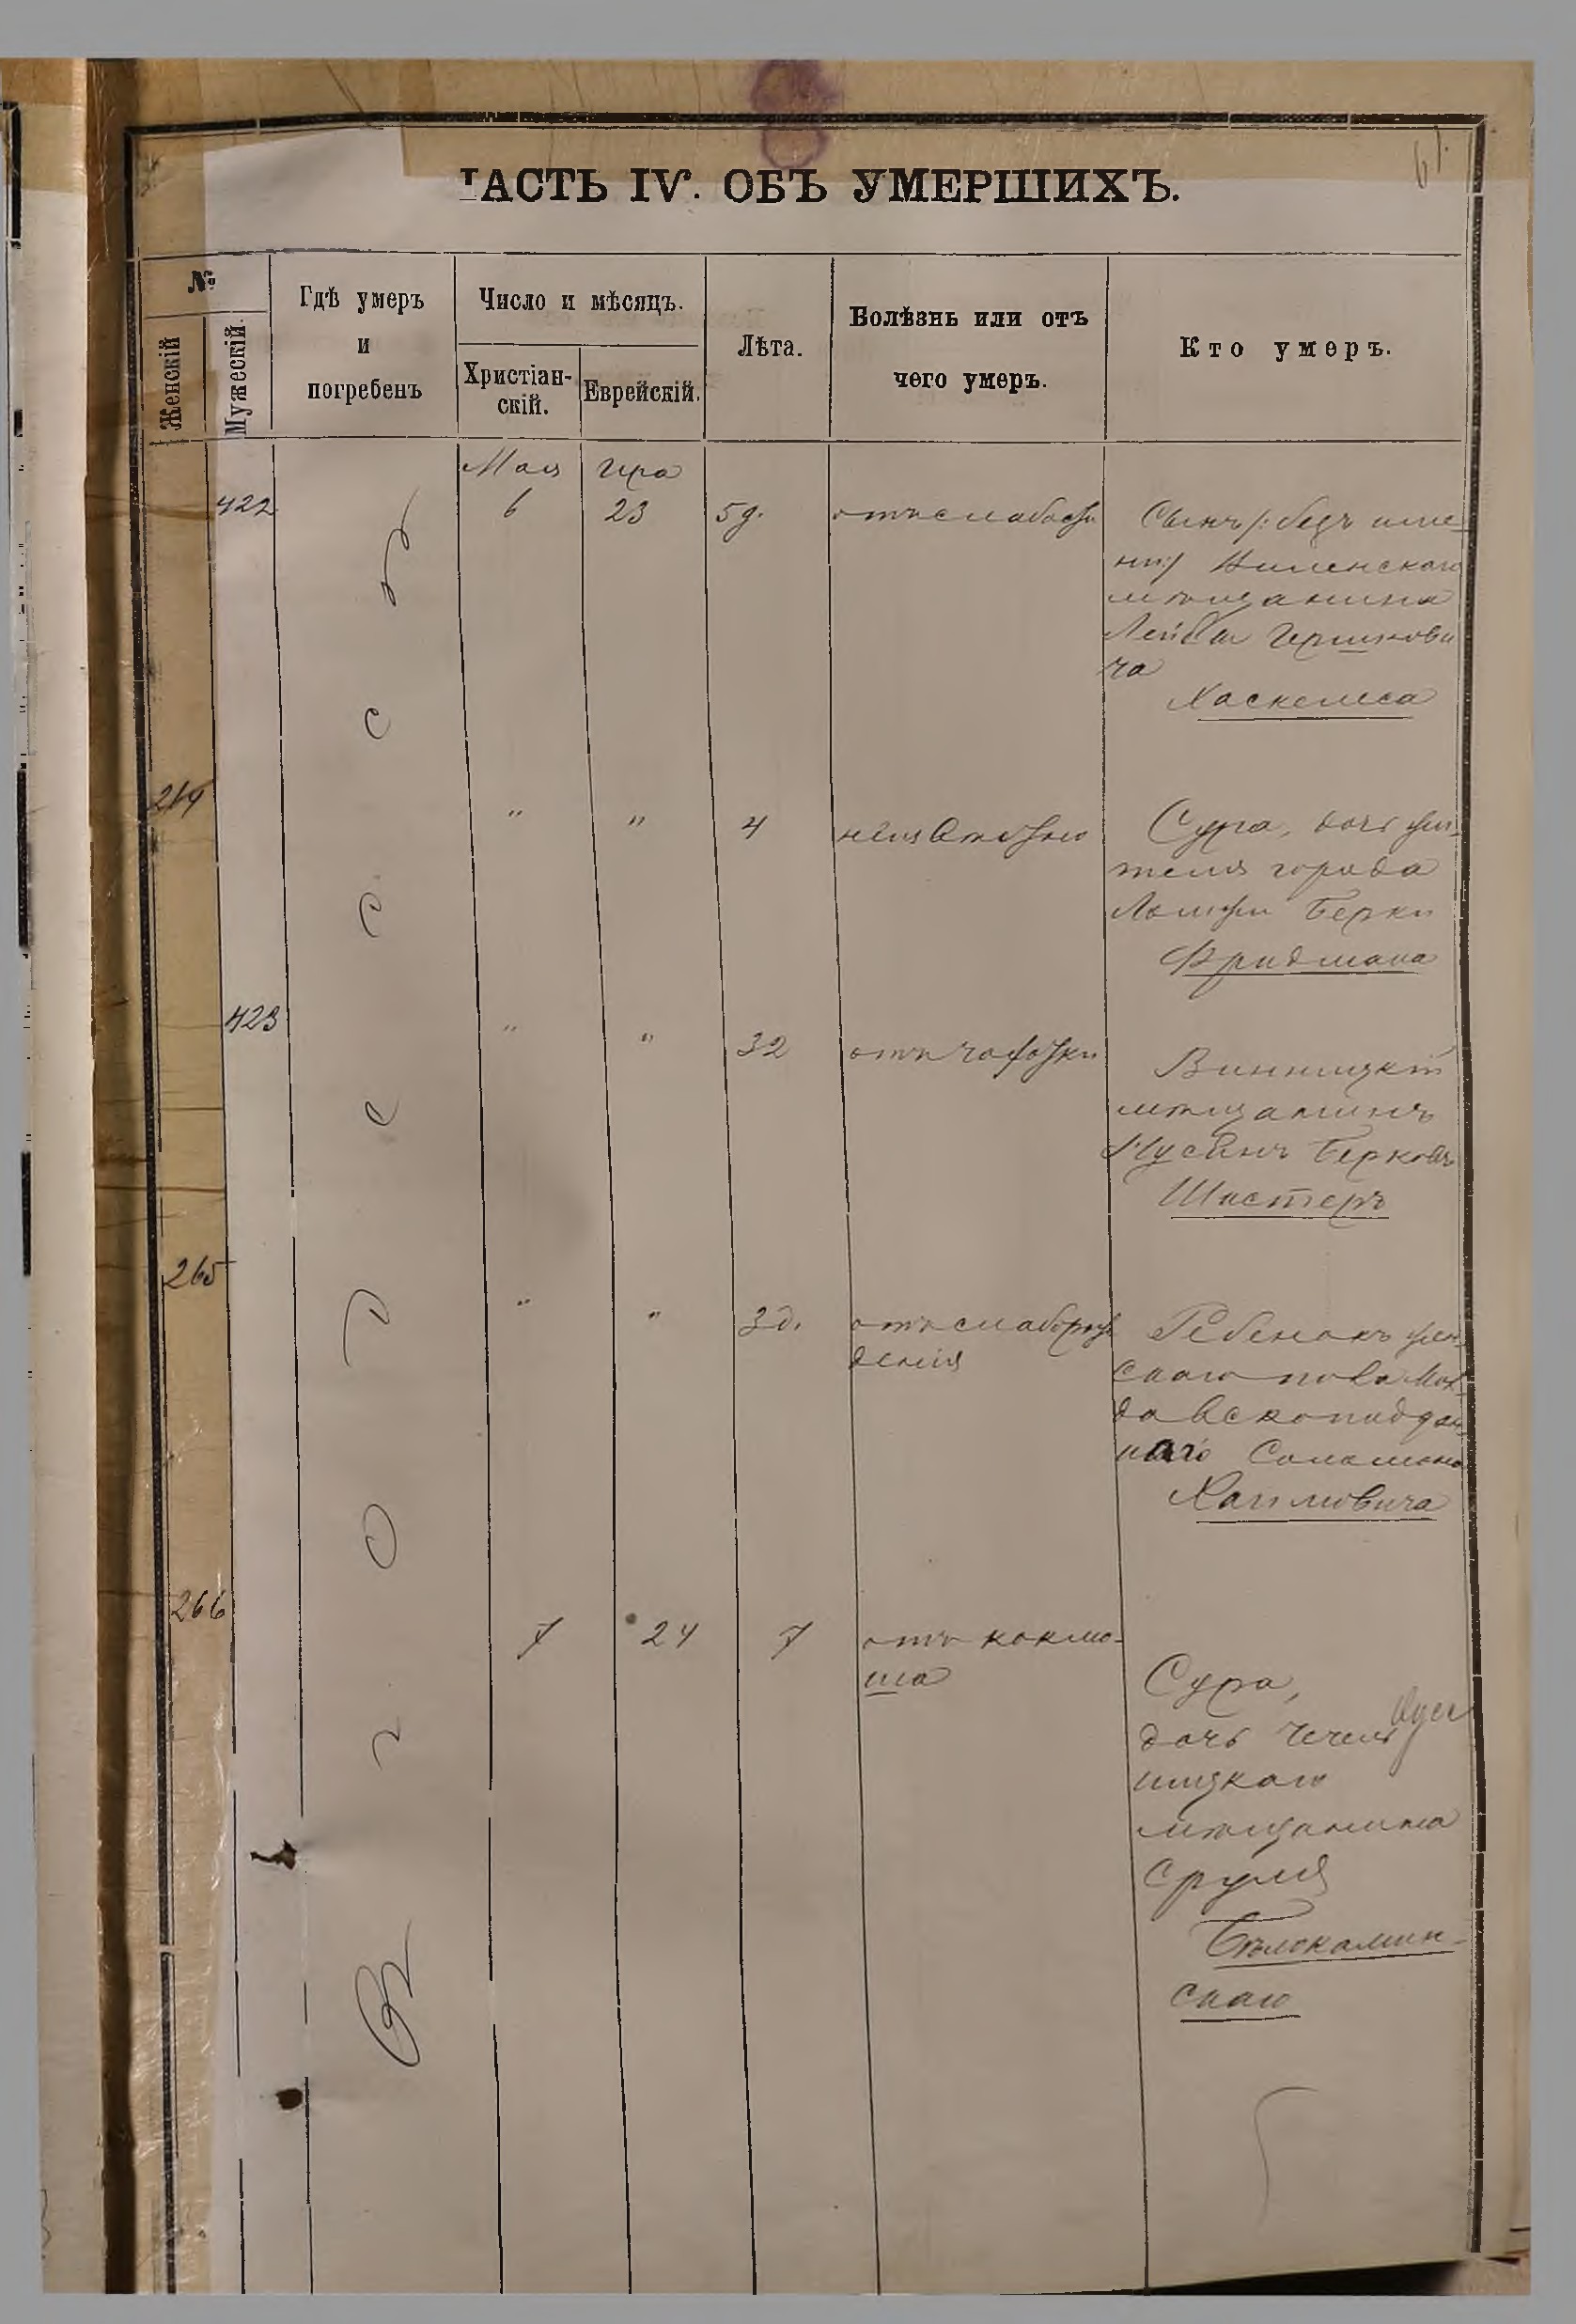 61.
ЧАСТЬ IV. ОБЪ УМЕРШИХЪ.
№
Женскій
Мужескій.
Гдѣ умеръ
и
погребенъ
Число и мѣсяцъ.
Христіан-
скій.
Еврейскій.
Лѣта.
Болѣзнь или отъ
чего умеръ.
Кто умеръ.
Въ г. Одессѣ
Мая
Ира
422
6
23
5 д.
отъ слабости
Сынъ /: безъ име-
ни :/ Виленскаго
мѣщанина
Лейбы Гершкови
ча
Хаскелеса
264
"
"
4
неизвѣстно
Сура, дочь жи-
теля города
Ломжи Берки
Фридмана
423
"
"
32
отъ чахотки
Винницкій
мѣщанинъ
Нусинъ Берковъ
Шистеръ
265
"
"
3 д.
отъ слаб. рож
денія
Ребенокъ жен-
скаго пола Мол-
давскоподдан-
наго Соломона
Хаимовича
266
7
24
7
отъ коклю-
ша
Сура,
дочь Чечель
ницкаго
мѣщанина
Сруля
Бѣлокамин-
скаго